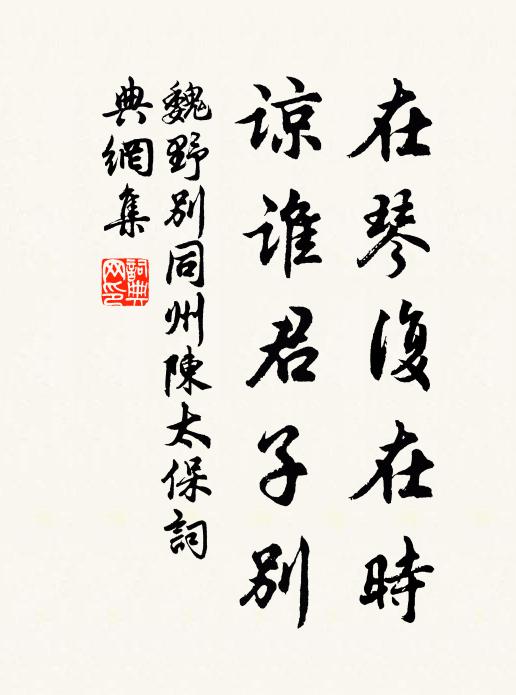 在琴復在時
谅谁君子別
魏野別同州陳太保詞
典網集
詞典網印